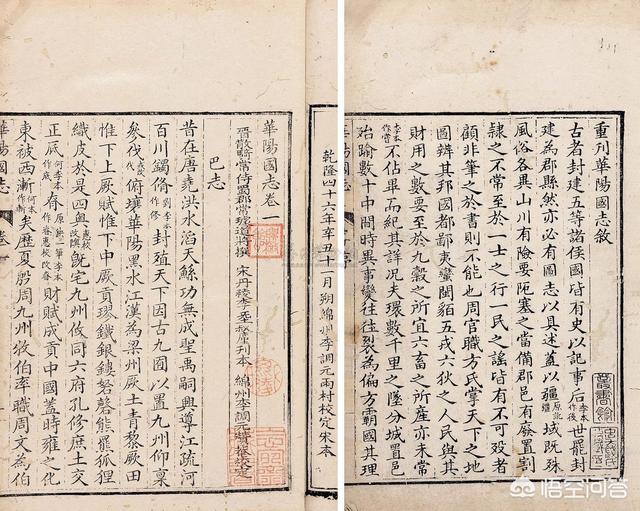 重刊華陽國志敘
古者封建五等諸侯國皆有史以記事后李本作後世罷封
建為郡縣然亦必有圖志以具述蓋以疆原訛域既殊
風俗各異山川有險要阨塞之當備郡邑有廢置割
隸之不常至於一士之行一民之謠皆有不可殁者
顧非筆之於書則不能也周官職方氏掌天下之地
圖辨其邦國都鄙夷蠻閩貊五戎六狄之人民與其
財用之數要至於九穀之所宜六畜之所產亦未常
李本作嘗不佔畢而紀其詳況夫環數千里之墜分城置邑
殆踰數十中間時異事變往往裂為偏方霸國其理
乾隆四十六年辛丑十一月朔綿州李調元雨村校定宋本
華陽國志卷一
晉散騎常侍蜀郡常璩道將撰 宋丹稜李 刊本 綿州李調元 校定
巴志
昔在唐堯洪水滔天鯀功無成聖禹嗣興導江疏河
百川蠲脩劉李本作修封殖天下因古九囿以置九州仰稟
參伐俯壤華陽黑水江漢為梁州厥土青黎厥田
惟下上厥賦惟下中厥貢璆鐵銀鏤砮磬熊羆狐狸
織皮於是四奧既宅九州攸同六府孔修庶土交
正底何李本作底財賦成貢中國蓋時雍之化
東被西漸何本作漸矣歷夏殷周九州牧伯率職周文為伯
華陽國志
卷一
悟空问答